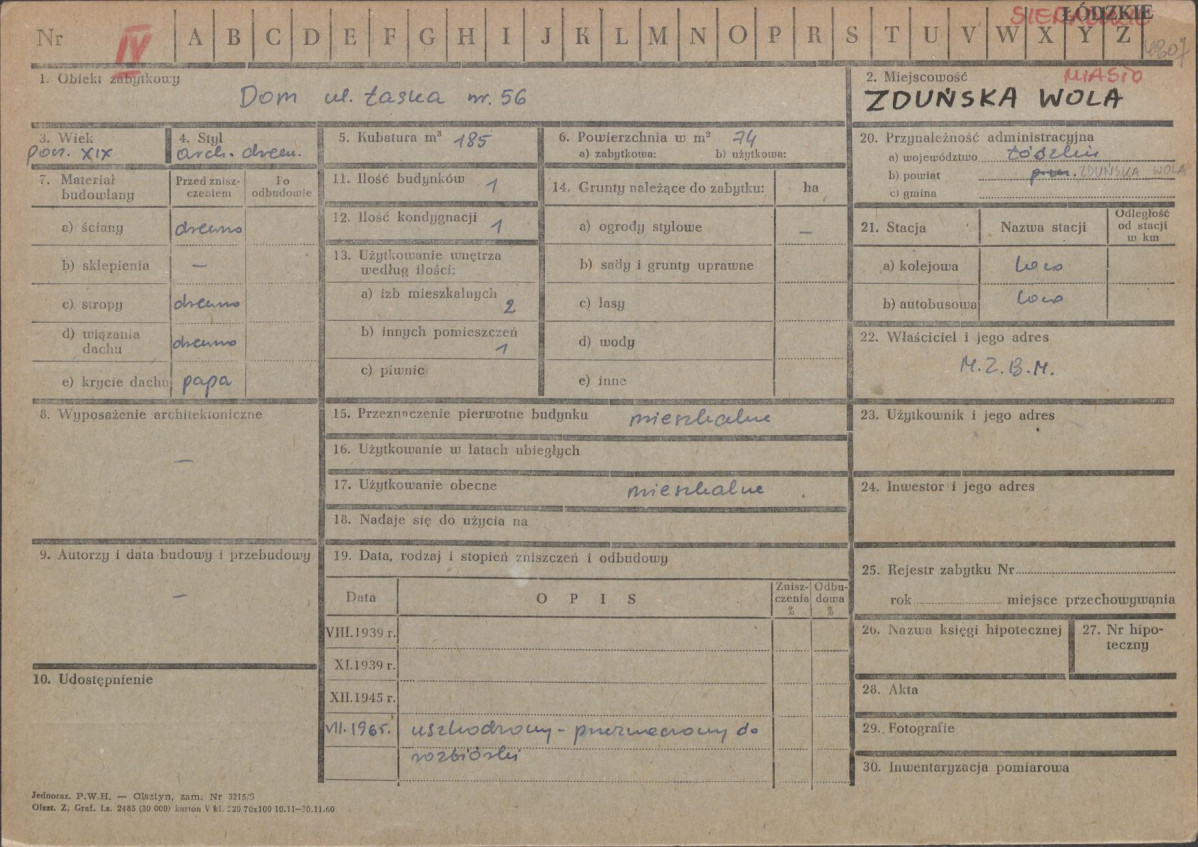 Nr IV A B C D E F G H I J K L M N O P R S T U V W X Y Z
ŁÓDZKIE
4307
1. Obiekt zabytkowy
Dom ul. Łaska nr. 56
2. Miejscowość
MIASTO
ZDUŃSKA WOLA
3. Wiek
pocz. XIX
4. Styl
arch. drewn.
5. Kubatura m³ 185
6. Powierzchnia w m² 74
a) zabytkowa: b) użytkowa:
20. Przynależność administracyjna
a) województwo łódzkie
b) powiat ZDUŃSKA WOLA
c) gmina
7. Materiał budowlany
Przed zniszczeniem
Po odbudowie
a) ściany drewno
b) sklepienia —
c) stropy drewno
d) wiązania dachu drewno
e) krycie dachu papa
11. Ilość budynków 1
12. Ilość kondygnacji 1
13. Użytkowanie wnętrza
według ilości:
a) izb mieszkalnych 2
b) innych pomieszczeń 1
c) piwnic
14. Grunty należące do zabytku: ha
a) ogrody stylowe —
b) sady i grunty uprawne
c) lasy
d) wody
e) inne
21. Stacja Nazwa stacji Odległość od stacji w km
a) kolejowa loco
b) autobusowa loco
22. Właściciel i jego adres
M.Z.B.M.
8. Wyposażenie architektoniczne
—
15. Przeznaczenie pierwotne budynku mieszkalne
16. Użytkowanie w latach ubiegłych
17. Użytkowanie obecne mieszkalne
18. Nadaje się do użycia na
23. Użytkownik i jego adres
24. Inwestor i jego adres
9. Autorzy i data budowy i przebudowy
—
10. Udostępnienie
19. Data, rodzaj i stopień zniszczeń i odbudowy
Data OPIS Zniszczenia % Odbudowa %
VIII.1939 r.
XI.1939 r.
XII.1945 r.
VII.1965r. uszkodzony - przeznaczony do
rozbiórki
25. Rejestr zabytku Nr
rok miejsce przechowywania
26. Nazwa księgi hipotecznej
27. Nr hipoteczny
28. Akta
29. Fotografie
30. Inwentaryzacja pomiarowa
Jednoraz. P.W.H. — Olsztyn, zam. Nr 3215/S
Olszt. Z. Graf. Lz. 2485 (30 000) karton V kl. 220 70x100 10.11—20.11.60